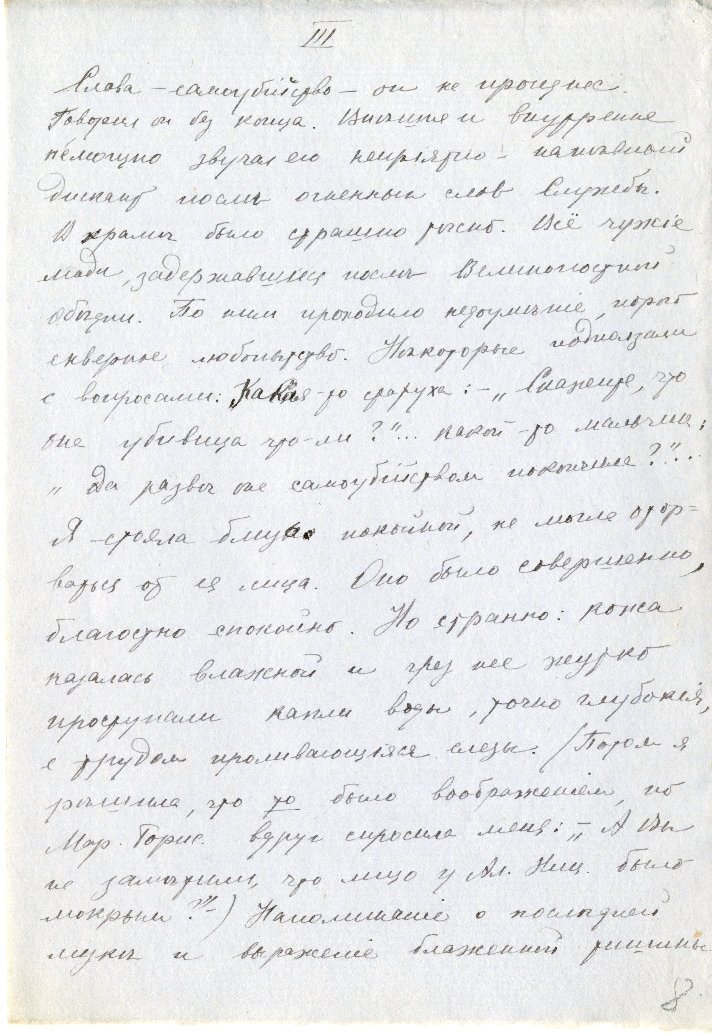 III
Слова – самоубійство – он не произнес.
Говорил он без конца. Внѣшне и внутренне
немощно звучал его непріятно-
дискант послѣ огненных слов Службы.
В храмѣ было страшно тѣсно. Всё чужіе
люди, задержавшіеся послѣ Великопостной
обѣдни. По ним проходило недоумѣніе, порой
скверное любопытство. Нѣкоторые подползали
с вопросами: Какая-то старуха: – „Скажите, что
она убивица что-ли?"... какой-то мальчик:
„Да развѣ она самоубійством покончила?"...
Я стояла близко покойной, не могла отор=
ваться от ея лица. Оно было совершенно,
благостно спокойно. Но странно: кожа
казалась влажной и чрез нее жутко
проступали капли воды, точно глубокія,
с трудом проливающіяся слезы. (Потом я
рѣшила, что то было воображеніем, но
Мар. Борис. вдруг спросила меня: – „А Вы
не замѣтили, что лицо у Ал. Ниц. было
мокрым?"–) Напоминаніе о послѣдней
мукѣ и выраженіе блаженной тишины
8